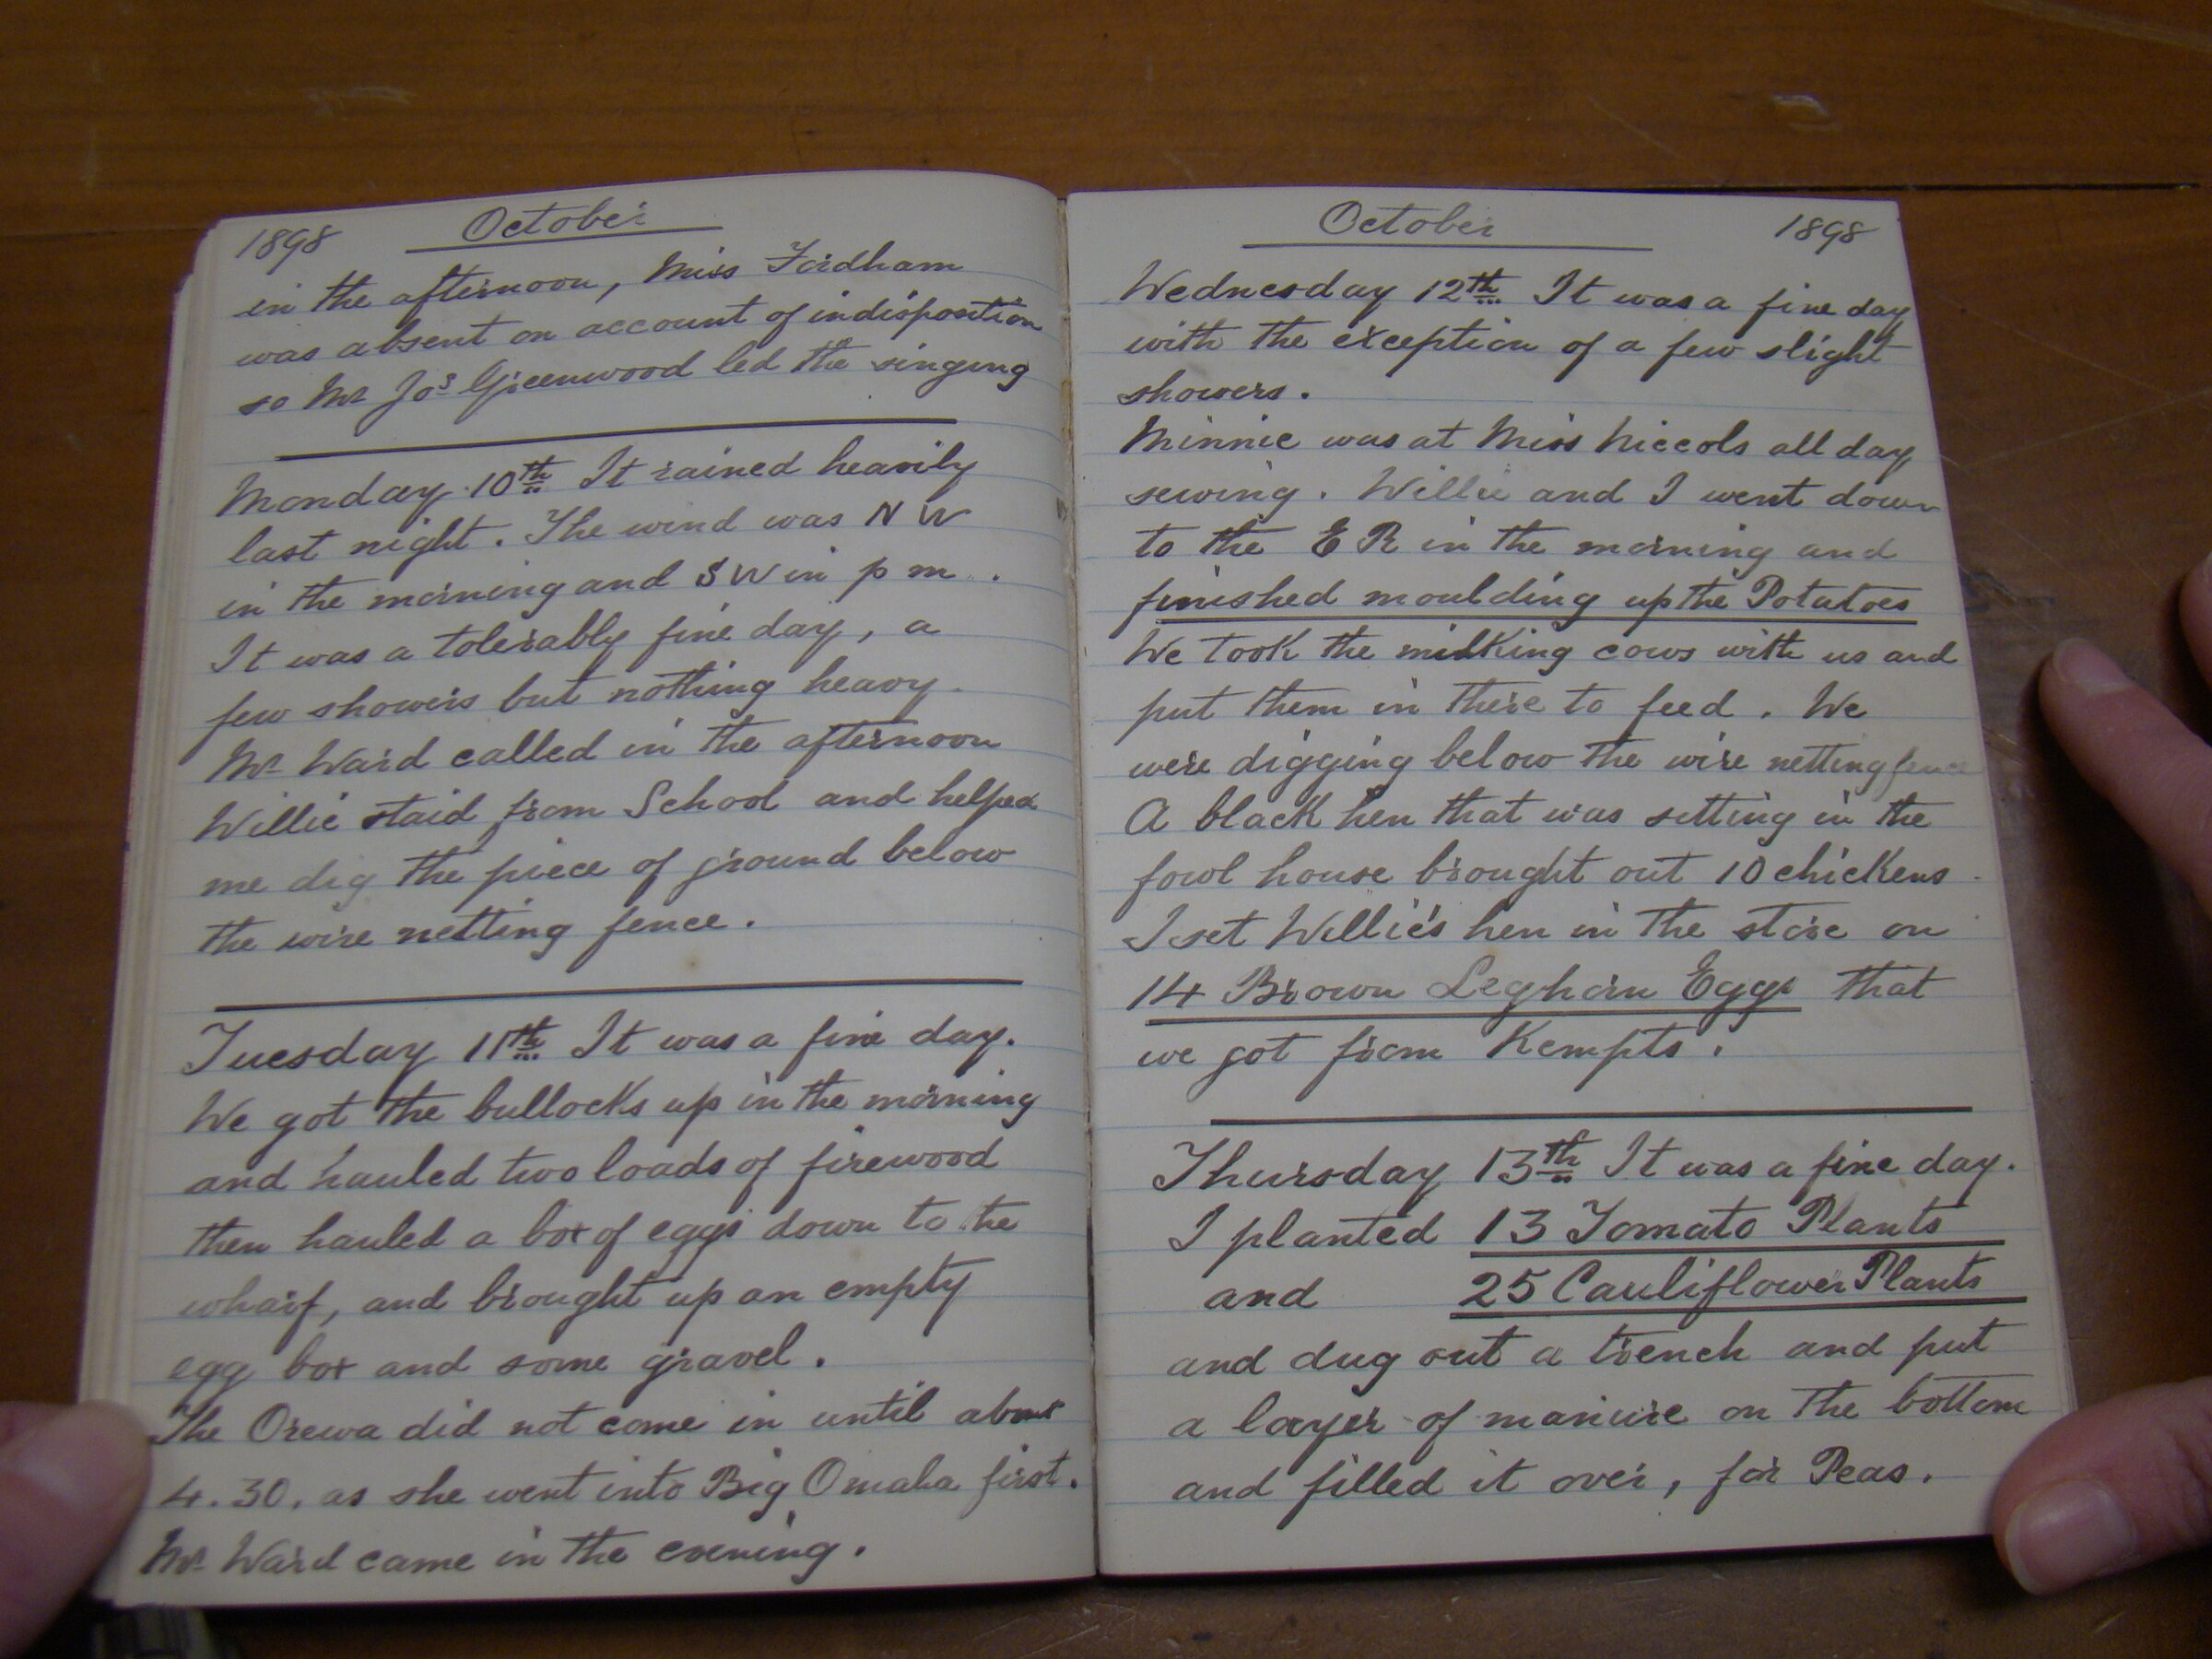 1898 October
in the afternoon, Miss Fordham
was absent on account of indisposition
so Mr Jos Greenwood led the singing
Monday 10th It rained heavily
last night. The wind was N W
in the morning and S W in p m.
It was a tolerably fine day, a
few showers but nothing heavy.
Mr Ward called in the afternoon
Willie staid from School and helped
me dig the piece of ground below
the wire netting fence.
Tuesday 11th It was a fine day.
We got the bullocks up in the morning
and hauled two loads of firewood
then hauled a box of eggs down to the
wharf, and brought up an empty
egg box and some gravel.
The Orewa did not come in until about
4.30. as she went into Big Omaha first.
Mr Ward came in the evening.
October 1898
Wednesday 12th It was a fine day
with the exception of a few slight
showers.
Minnie was at Miss Niccols all day
sewing. Willie and I went down
to the E R in the morning and
finished moulding up the Potatoes
We took the milking cows with us and
put them in there to feed. We
were digging below the wire netting fence
A black hen that was setting in the
fowl house brought out 10 chickens.
I set Willie's hen in the store on
14 Brown Leghorn Eggs that
we got from Kempts.
Thursday 13th It was a fine day.
I planted 13 Tomato Plants
and 25 Cauliflower Plants
and dug out a trench and put
a layer of manure on the bottom
and filled it over, for Peas.